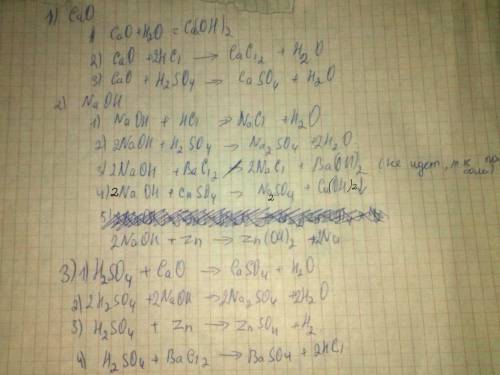 1) CaO
1) CaO + H2O = Ca(OH)2
2) CaO + 2HCl → CaCl2 + H2O
3) CaO + H2SO4 → CaSO4 + H2O
2) NaOH
1) NaOH + HCl → NaCl + H2O
2) 2NaOH + H2SO4 → Na2SO4 + 2H2O
3) 2NaOH + BaCl2 ↛ 2NaCl + Ba(OH)2 (не идет, т.к.
4) 2NaOH + CuSO4 → Na2SO4 + Cu(OH)2↓
2NaOH + Zn → Zn(OH)2 + 2Na
3) 1) H2SO4 + CaO → CaSO4 + H2O
2) 2H2SO4 + 2NaOH → 2Na2SO4 + 2H2O
3) H2SO4 + Zn → ZnSO4 + H2
4) H2SO4 + BaCl2 → BaSO4 + 2HCl